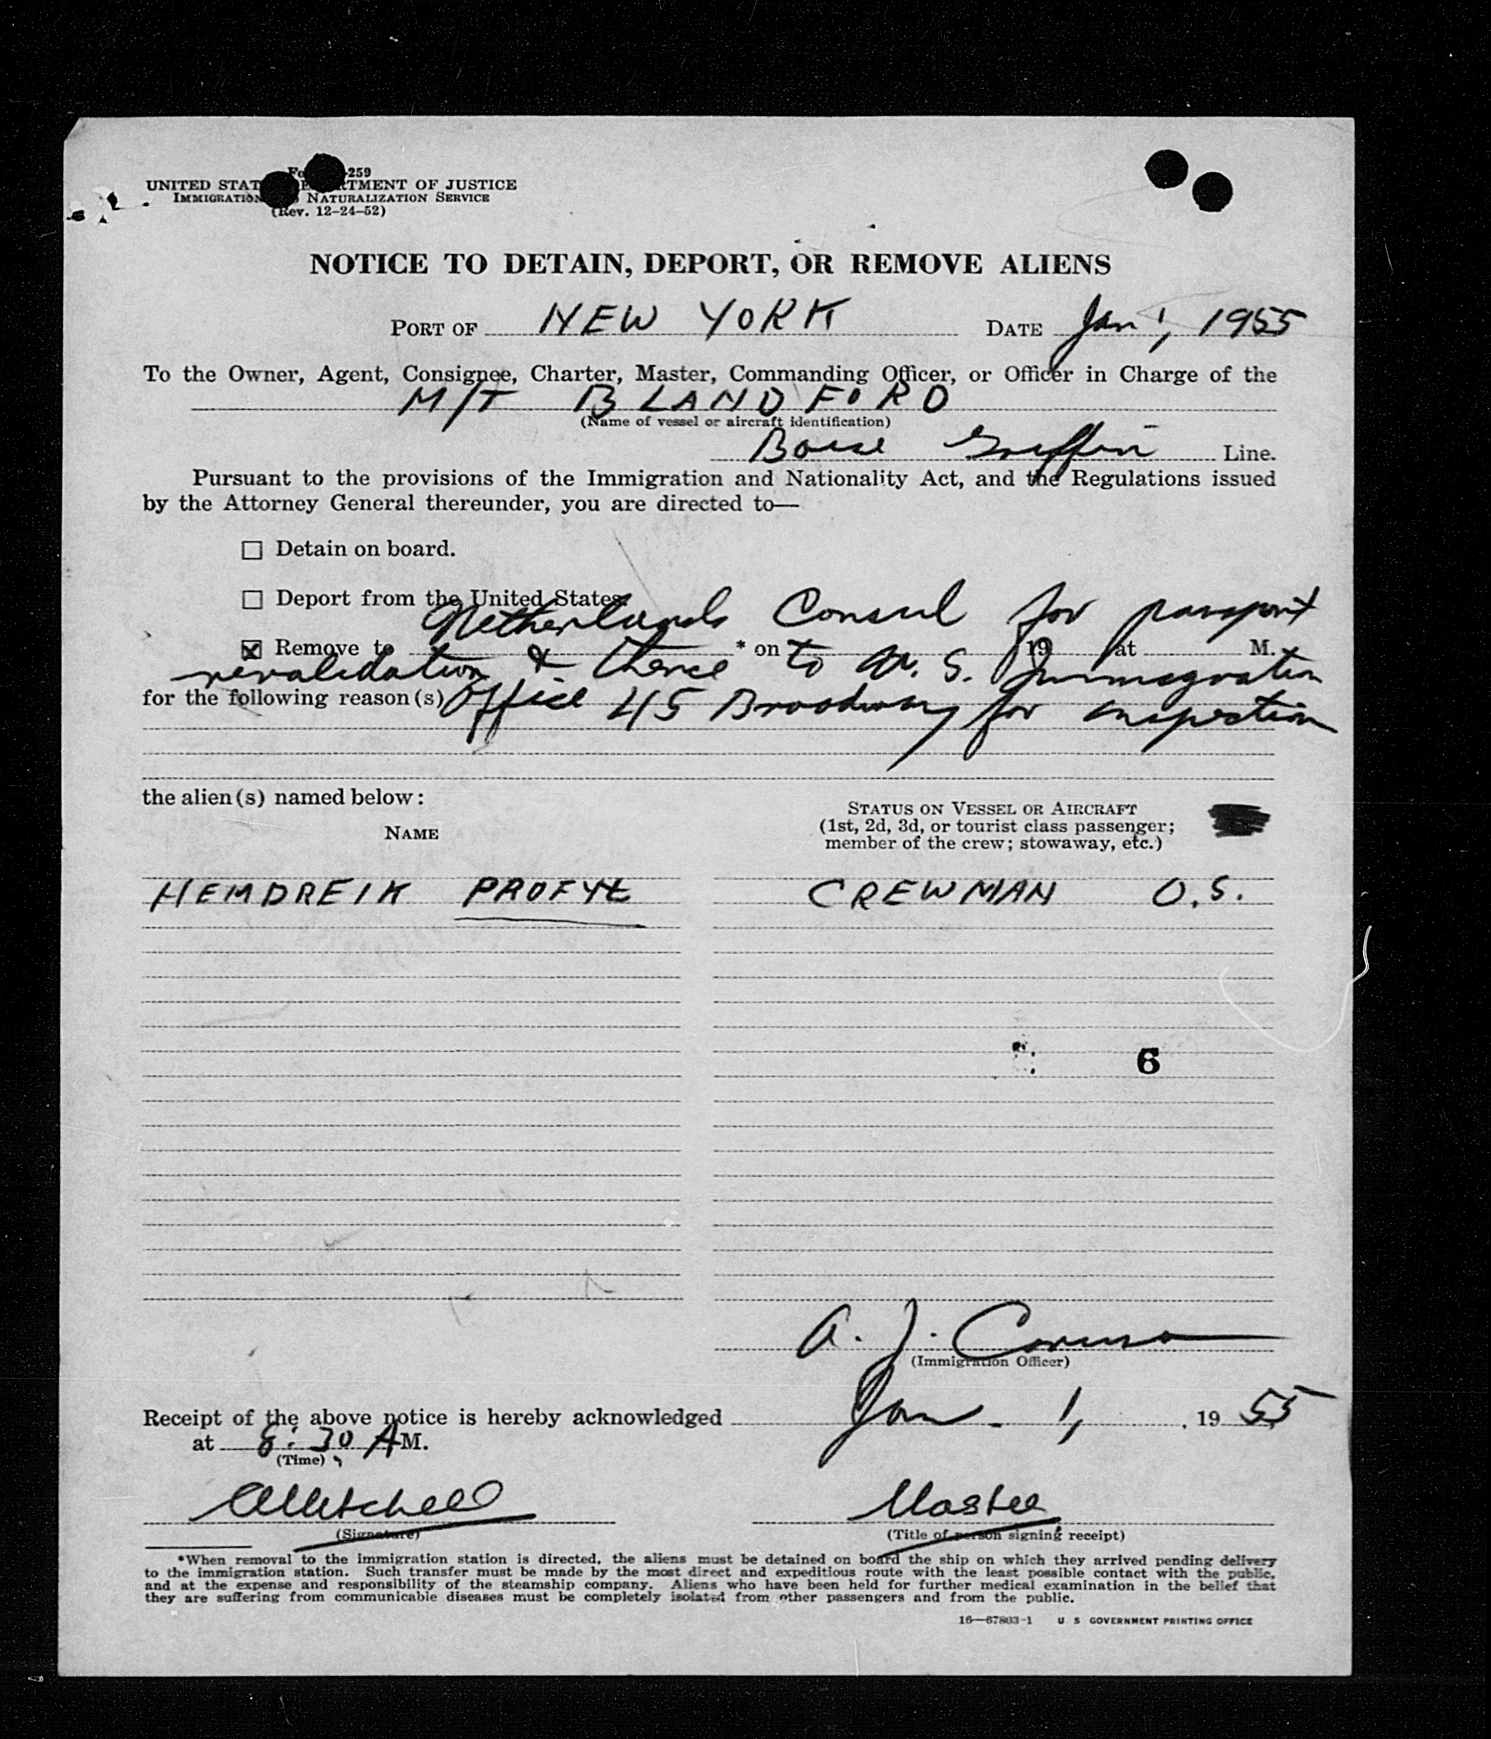 Fo -259
UNITED STAT TMENT OF JUSTICE
IMMIGRATION NATURALIZATION SERVICE
(Rev. 12-24-52)
NOTICE TO DETAIN, DEPORT, OR REMOVE ALIENS
PORT OF NEW YORK DATE Jan 1, 1955
To the Owner, Agent, Consignee, Charter, Master, Commanding Officer, or Officer in Charge of the
M/T BLANDFORD
(Name of vessel or aircraft identification)
Boise Griffin Line.
Pursuant to the provisions of the Immigration and Nationality Act, and the Regulations issued
by the Attorney General thereunder, you are directed to—
☐ Detain on board.
☐ Deport from the United States.
Netherlands Consul for passport
☒ Remove to * on 19 at M.
revalidation & thence to U.S. Immigration
for the following reason(s) Office 45 Broadway for inspection
the alien(s) named below:
NAME
STATUS ON VESSEL OR AIRCRAFT
(1st, 2d, 3d, or tourist class passenger;
member of the crew; stowaway, etc.)
HEMDREIK PROFYT CREWMAN O.S.
6
A. J. Caruso
(Immigration Officer)
Receipt of the above notice is hereby acknowledged Jan. 1, , 19 55
at 8:30 AM.
(Time)
Mitchell Master
(Signature) (Title of person signing receipt)
*When removal to the immigration station is directed, the aliens must be detained on board the ship on which they arrived pending delivery
to the immigration station. Such transfer must be made by the most direct and expeditious route with the least possible contact with the public,
and at the expense and responsibility of the steamship company. Aliens who have been held for further medical examination in the belief that
they are suffering from communicable diseases must be completely isolated from other passengers and from the public.
16—67803-1 U S GOVERNMENT PRINTING OFFICE